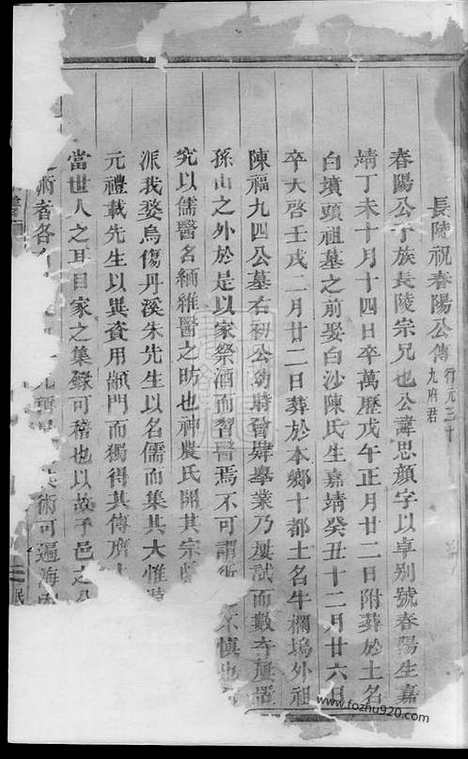 長陵祝春陽公傳 行元三十九府君
春陽公予族長陵宗兄也公諱思顔字以卓别號春陽生嘉
靖丁未十月十四日卒萬歷戊午正月廿二日附葬於土名
白墳頭祖墓之前娶白沙陳氏生嘉靖癸丑十二月廿六日
卒天啓壬戌二月廿二日葬於本鄉十都土名牛欄塢外祖
陳福九四公墓右祝公幼時曾肄舉業乃屢試而數奇
孫山之外於是以家祭酒而習醫焉不可謂 不慎也
究以儒醫名緬維醫之昉也神農氏開其宗
派我婺烏傷丹溪朱先生以名儒而集其大惟
元禮載先生以異資用顓門而獨得其傳
當世人之耳目家之集錄可稽也以故予邑之
術者各 術可遍海
www.fozhu920.com